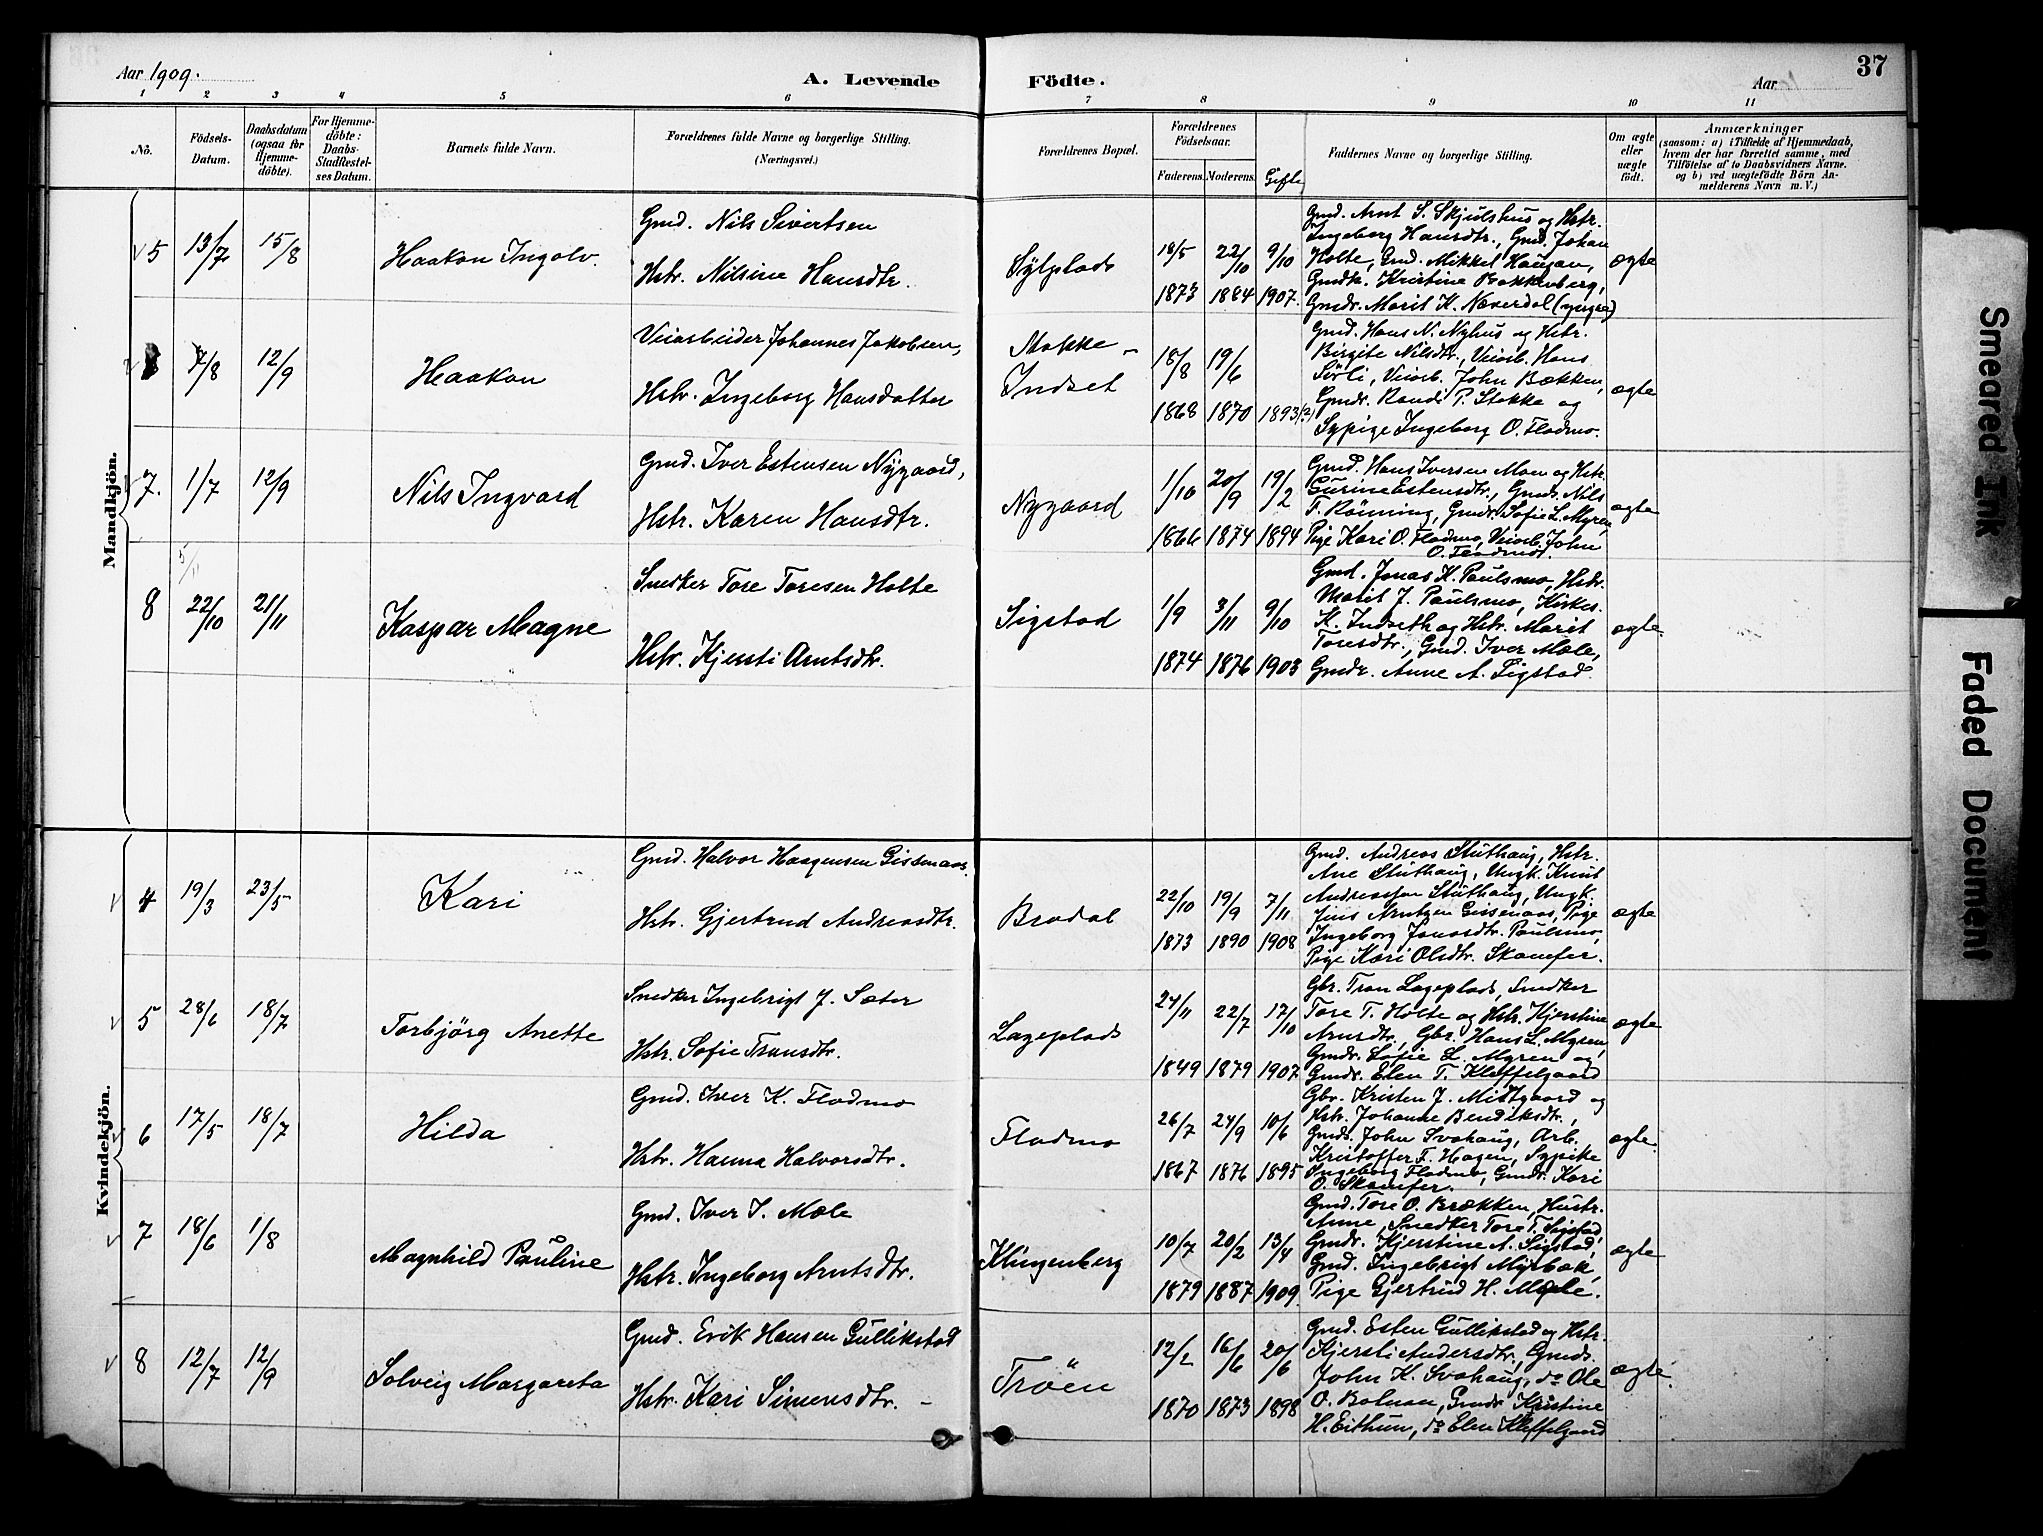 Aar 1909.
A. Levende
Födte.
Aar
37
1 2 3 4 5 6 7 8 9 10 11
No.
Födsels-
Datum.
Daabsdatum
(ogsaa for
Hjemme-
döbte).
For Hjemme-
döbte:
Daabs-
Stadfæstel-
ses Datum.
Barnets fulde Navn.
Forældrenes fulde Navne og borgerlige Stilling.
(Næringsvei.)
Forældrenes Bopæl.
Forældrenes
Födselsaar.
Faderens.
Moderens.
Gifte
Faddernes Navne og borgerlige Stilling.
Om ægte
eller
uægte
födt.
Anmærkninger
(saasom: a) i Tilfælde af Hjemmedaab,
hvem der har forrettet samme, med
Tilföielse af to Daabsvidners Navne.
og b) ved uægtefödte Börn An-
melderens Navn m. V.)
Mandkjön.
5
13/7
15/8
Haakon Ingolv.
Gmd. Nils Sivertsen
Hstr. Nilsine Hansdtr.
Sylplads
18/5 22/10 9/10
1873 1884 1907.
Gmd. Arnt S. Skjulshus og Hstr.
Ingeborg Hansdtr., Gmd. Johan
Holte, Gmd. Mikkel Haugan,
Gmdk. Kristine Bakkenberg,
Gmdr. Marit K. Næverdal (yngre)
ægte
7/8
12/9
Haakon
Veiarbeider Johannes Jakobsen,
Hstr. Ingeborg Hansdatter
Stokke -
Indset
18/8 19/6
1868 1870 1893(?)
Gmd. Hans N. Nyhus og Hstr.
Birgite Nilsdtr., Veiarb. Hans
Sörli, Veiarb. John Bækken,
Gmdr. Randi P. Stokke og
Sypige Ingeborg O. Flodmo.
ægte
7.
1/7
12/9
Nils Ingvard
Gmd. Iver Estensen Nygaard,
Hstr. Karen Hansdtr.
Nygaard
1/10 20/9 19/2
1866 1874 1894
Gmd. Hans Iversen Moen og Hstr.
Gurine Estensdtr., Gmds. Nils
T. Rönning, Gmdr. Sofie L. Myren,
Pige Kari O. Flodmo, Veiarb. John
O. Flodmo.
ægte
5/11
8
22/10
21/11
Kaspar Magne
Snedker Tore Toresen Holte
Hstr. Kjersti Arntsdtr.
Sigstad
1/9 3/11 9/10
1874 1876 1903
Gmd. Jonas K. Paulsmo, Hstr.
Marit J. Paulsmo, Kirkes.
K. Indseth og Hstr. Marit
Toresdtr., Gmd. Iver Mæle,
Gmdr. Anne A. Sigstad.
ægte.
Kvindekjön.
4
19/3
23/5
Kari
Gmd. Halvor Haagensen Gissenaas.
Hstr. Gjertrud Andreasdtr.
Brodal
22/10 19/9 7/11
1873 1890 1908
Gmd. Andreas Stuthaug, Hstr.
Ane Stuthaug, Ungk. Knut
Andreassen Stuthaug, Ungk.
Jens Arntzen Gissenaas, Pige
Ingeborg Jonasdtr. Paulsmo,
Pige Kari Olsdtr. Skamfer.
ægte
5
28/6
18/7
Torbjörg Anette
Snedker Ingebrigt J. Sæter
Hstr. Sofie Tronsdtr.
Lageplads
24/11 22/7 17/10
1849 1879 1907
Gbr. Tron Lageplads, Snedker
Tore T. Holte og Hstr. Kjerstine
Arnsdtr., Gbr. Hans L. Myren,
Gmdr. Sofie L. Myren og
Gmdr. Elen T. Kleffelgaard
ægte
6
17/5
18/7
Hilda
Gmd. Iver K. Flodmo
Hstr. Hanna Halvorsdtr.
Flodmo
26/7 24/9 10/6
1867 1876 1895
Gbr. Kristen J. Midtgaard og
Hstr. Johanne Bendiksdtr.,
Gmds. John Svahaug, Arb.
Kristoffer F. Hagen, Sypike
Ingeborg Flodmo, Gmdr. Kari
O. Skamfer.
ægte.
7
18/6
1/8
Magnhild Pauline
Gmd. Iver I. Mæle
Hstr. Ingeborg Arntsdtr.
Klingenberg
10/7 20/2 13/4
1879 1887 1909.
Gmd. Tore O. Brækken, Hustr.
Anne, Snedker Tore T. Sigstad,
Gmdr. Kjerstine A. Sigstad,
Gmd. Ingebrigt Myrbæk,
Pige Gjertrud H. Mæle.
ægte
8
12/7
12/9
Solveig Margareta
Gmd. Erik Hansen Gullikstad
Hstr. Kari Simensdtr. -
Tröen
12/2 16/6 20/6
1870 1873 1898
Gmd. Esten Gullikstad og Hstr.
Kjersti Andersdtr., Gmds.
John K. Svahaug, do Ole
O. Bolman, Gmdr. Kristine
H. Eithun, do Elen Kleffelgaard
ægte.
Smeared Ink
Faded Document